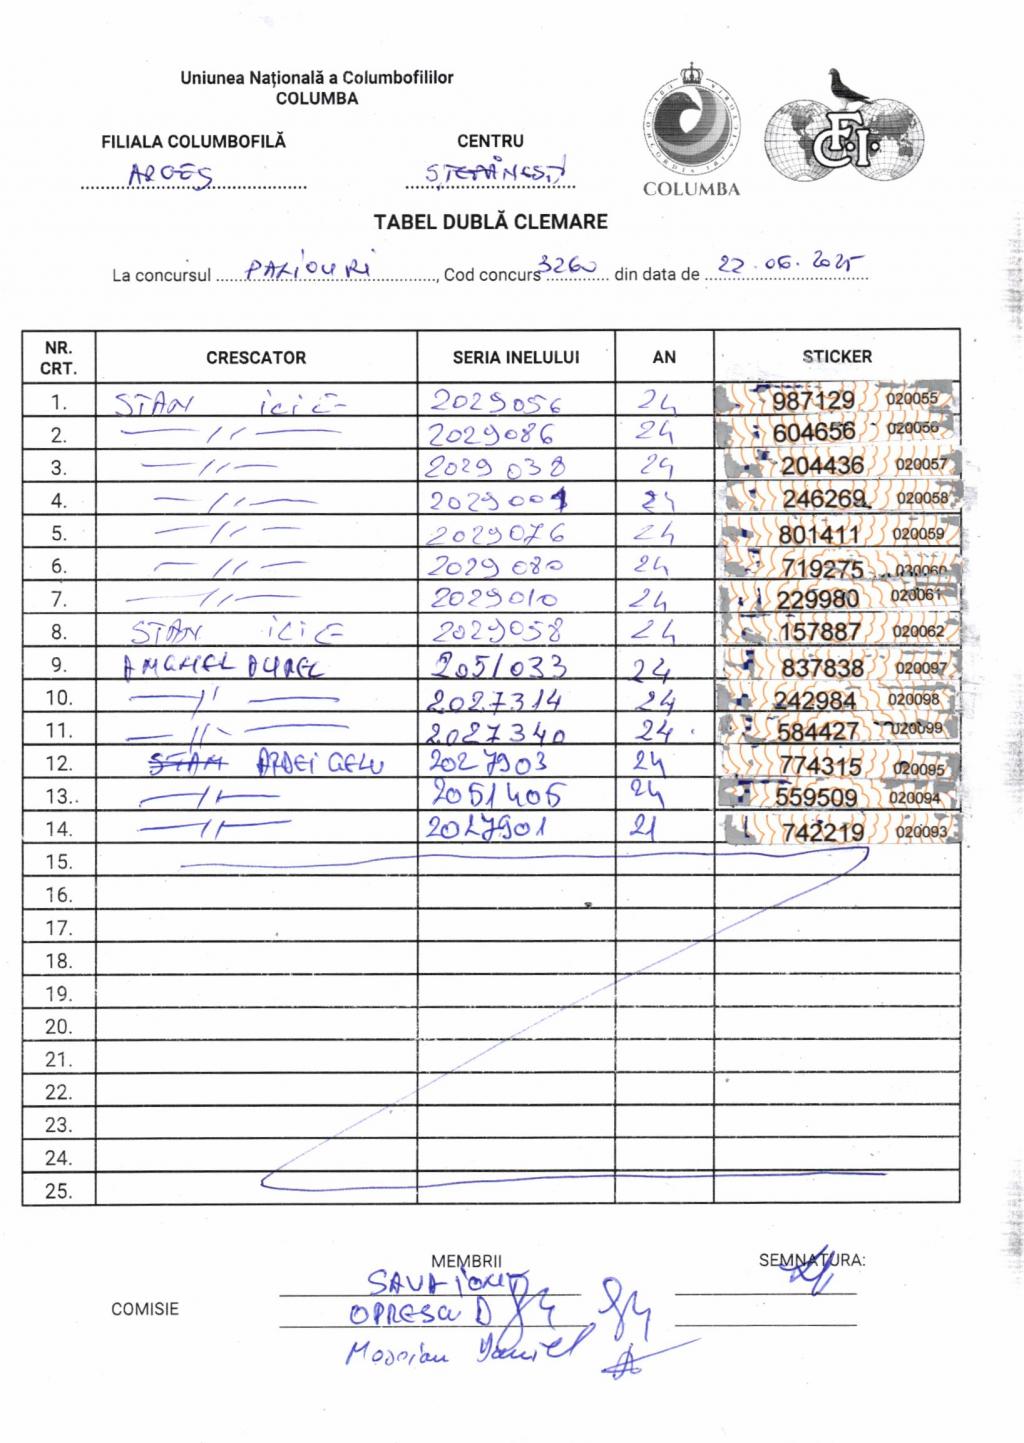 Uniunea Națională a Columbofililor
COLUMBA
FILIALA COLUMBOFILĂ CENTRU
ARGEȘ ȘTEFĂNEȘTI
COLUMBA
F.C.I.
TABEL DUBLĂ CLEMARE
La concursul PALIOURI, Cod concurs 3260 din data de 22.06.2025
NR. CRT. CRESCATOR SERIA INELULUI AN STICKER
1. STAN ILIE 2029056 24 987129 020055
2. —//— 2029086 24 604656 020056
3. —//— 2029038 24 204436 020057
4. —//— 2029001 24 246269 020058
5. —//— 2029076 24 801411 020059
6. —//— 2029080 24 719275 020060
7. —//— 2029010 24 229980 020061
8. STAN ILIE 2029058 24 157887 020062
9. ANGHEL AUREL 2051033 24 837838 020097
10. —//— 2027314 24 242984 020098
11. —//— 2027340 24 584427 020099
12. STAN ARDEI GELU 2027903 24 774315 020095
13. —//— 2051405 24 559509 020094
14. —//— 2027901 21 742219 020093
15.
16.
17.
18.
19.
20.
21.
22.
23.
24.
25.
MEMBRII SEMNATURA:
SAVA IONUȚ
COMISIE
OPRESCU D
Daniel